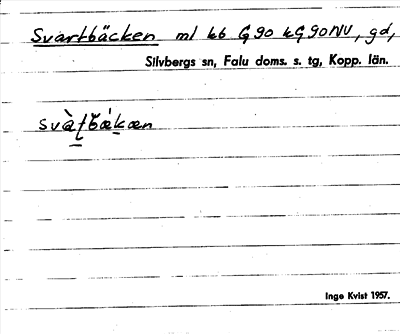 Svartbäcken ml kb G 90 kG90NV, gd,
Silvbergs sn, Falu doms. s. tg, Kopp. län.
svàt̠bák̠æn
Inge Kvist 1957.